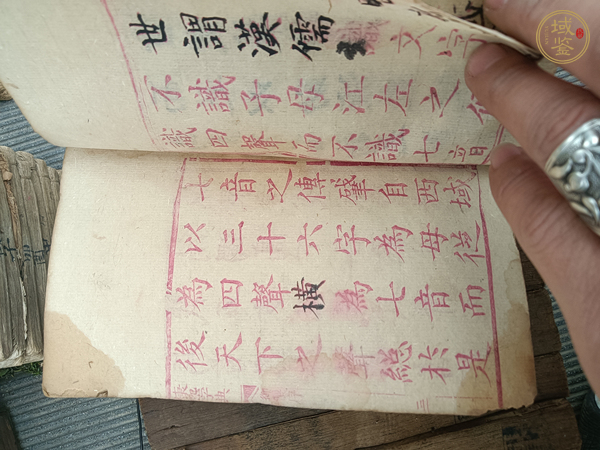 世謂漢儒識文字
不識子母江左之
識四聲而不識七音
七音之傳肇自西域
以三十六字為母從
為四聲橫為七音而
後天下之聲總於是
域鉴